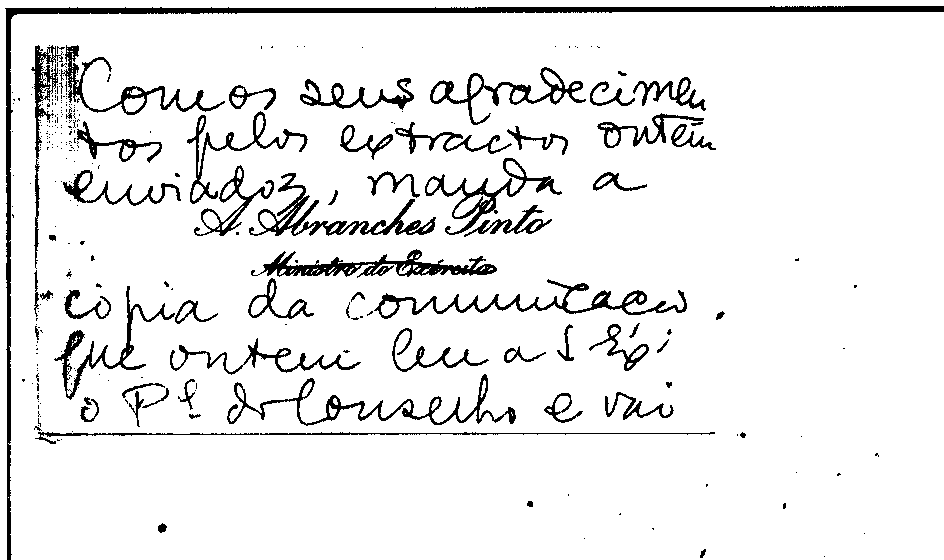 Com os seus agradecimen
tos pelos extractos ontem
enviados, manda a
A. Abranches Pinto
Ministro do Exército
cópia da comunicação
que ontem leu a S. Ex.ª
o P.e do Conselho e vai